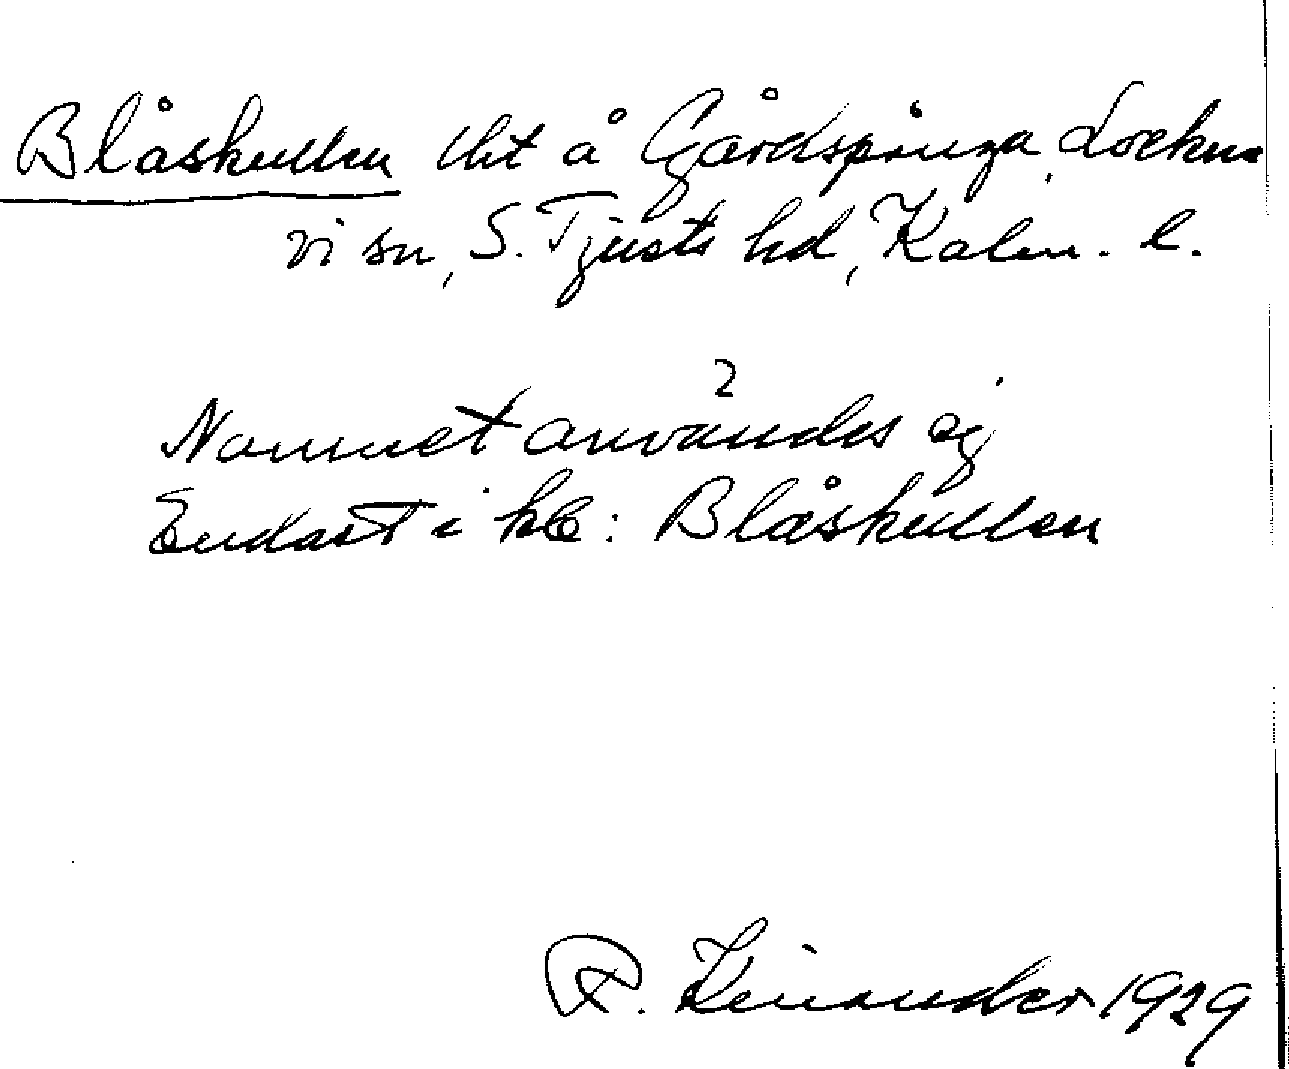 Blåskullen tht å Gårdspånga, Lockne
vi sn, S. Tjusts hd, Kalm. l.
2
Namnet användes ej
Endast i kb: Blåskullen
R. Kinander 1929